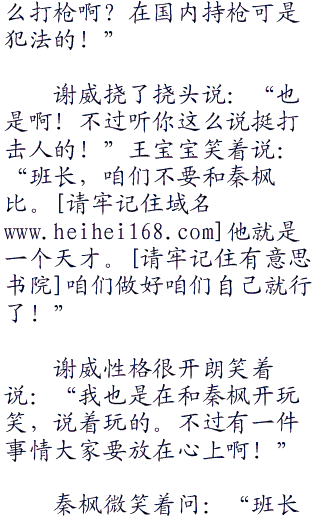 么打枪啊？在国内持枪可是
犯法的！”
谢威挠了挠头说：“也
是啊！不过听你这么说挺打
击人的！”王宝宝笑着说：
“班长，咱们不要和秦枫
比。[请牢记住域名
www.heihei168.com]他就是
一个天才。[请牢记住有意思
书院]咱们做好咱们自己就行
了！”
谢威性格很开朗笑着
说：“我也是在和秦枫开玩
笑，说着玩的。不过有一件
事情大家要放在心上啊！”
秦枫微笑着问：“班长